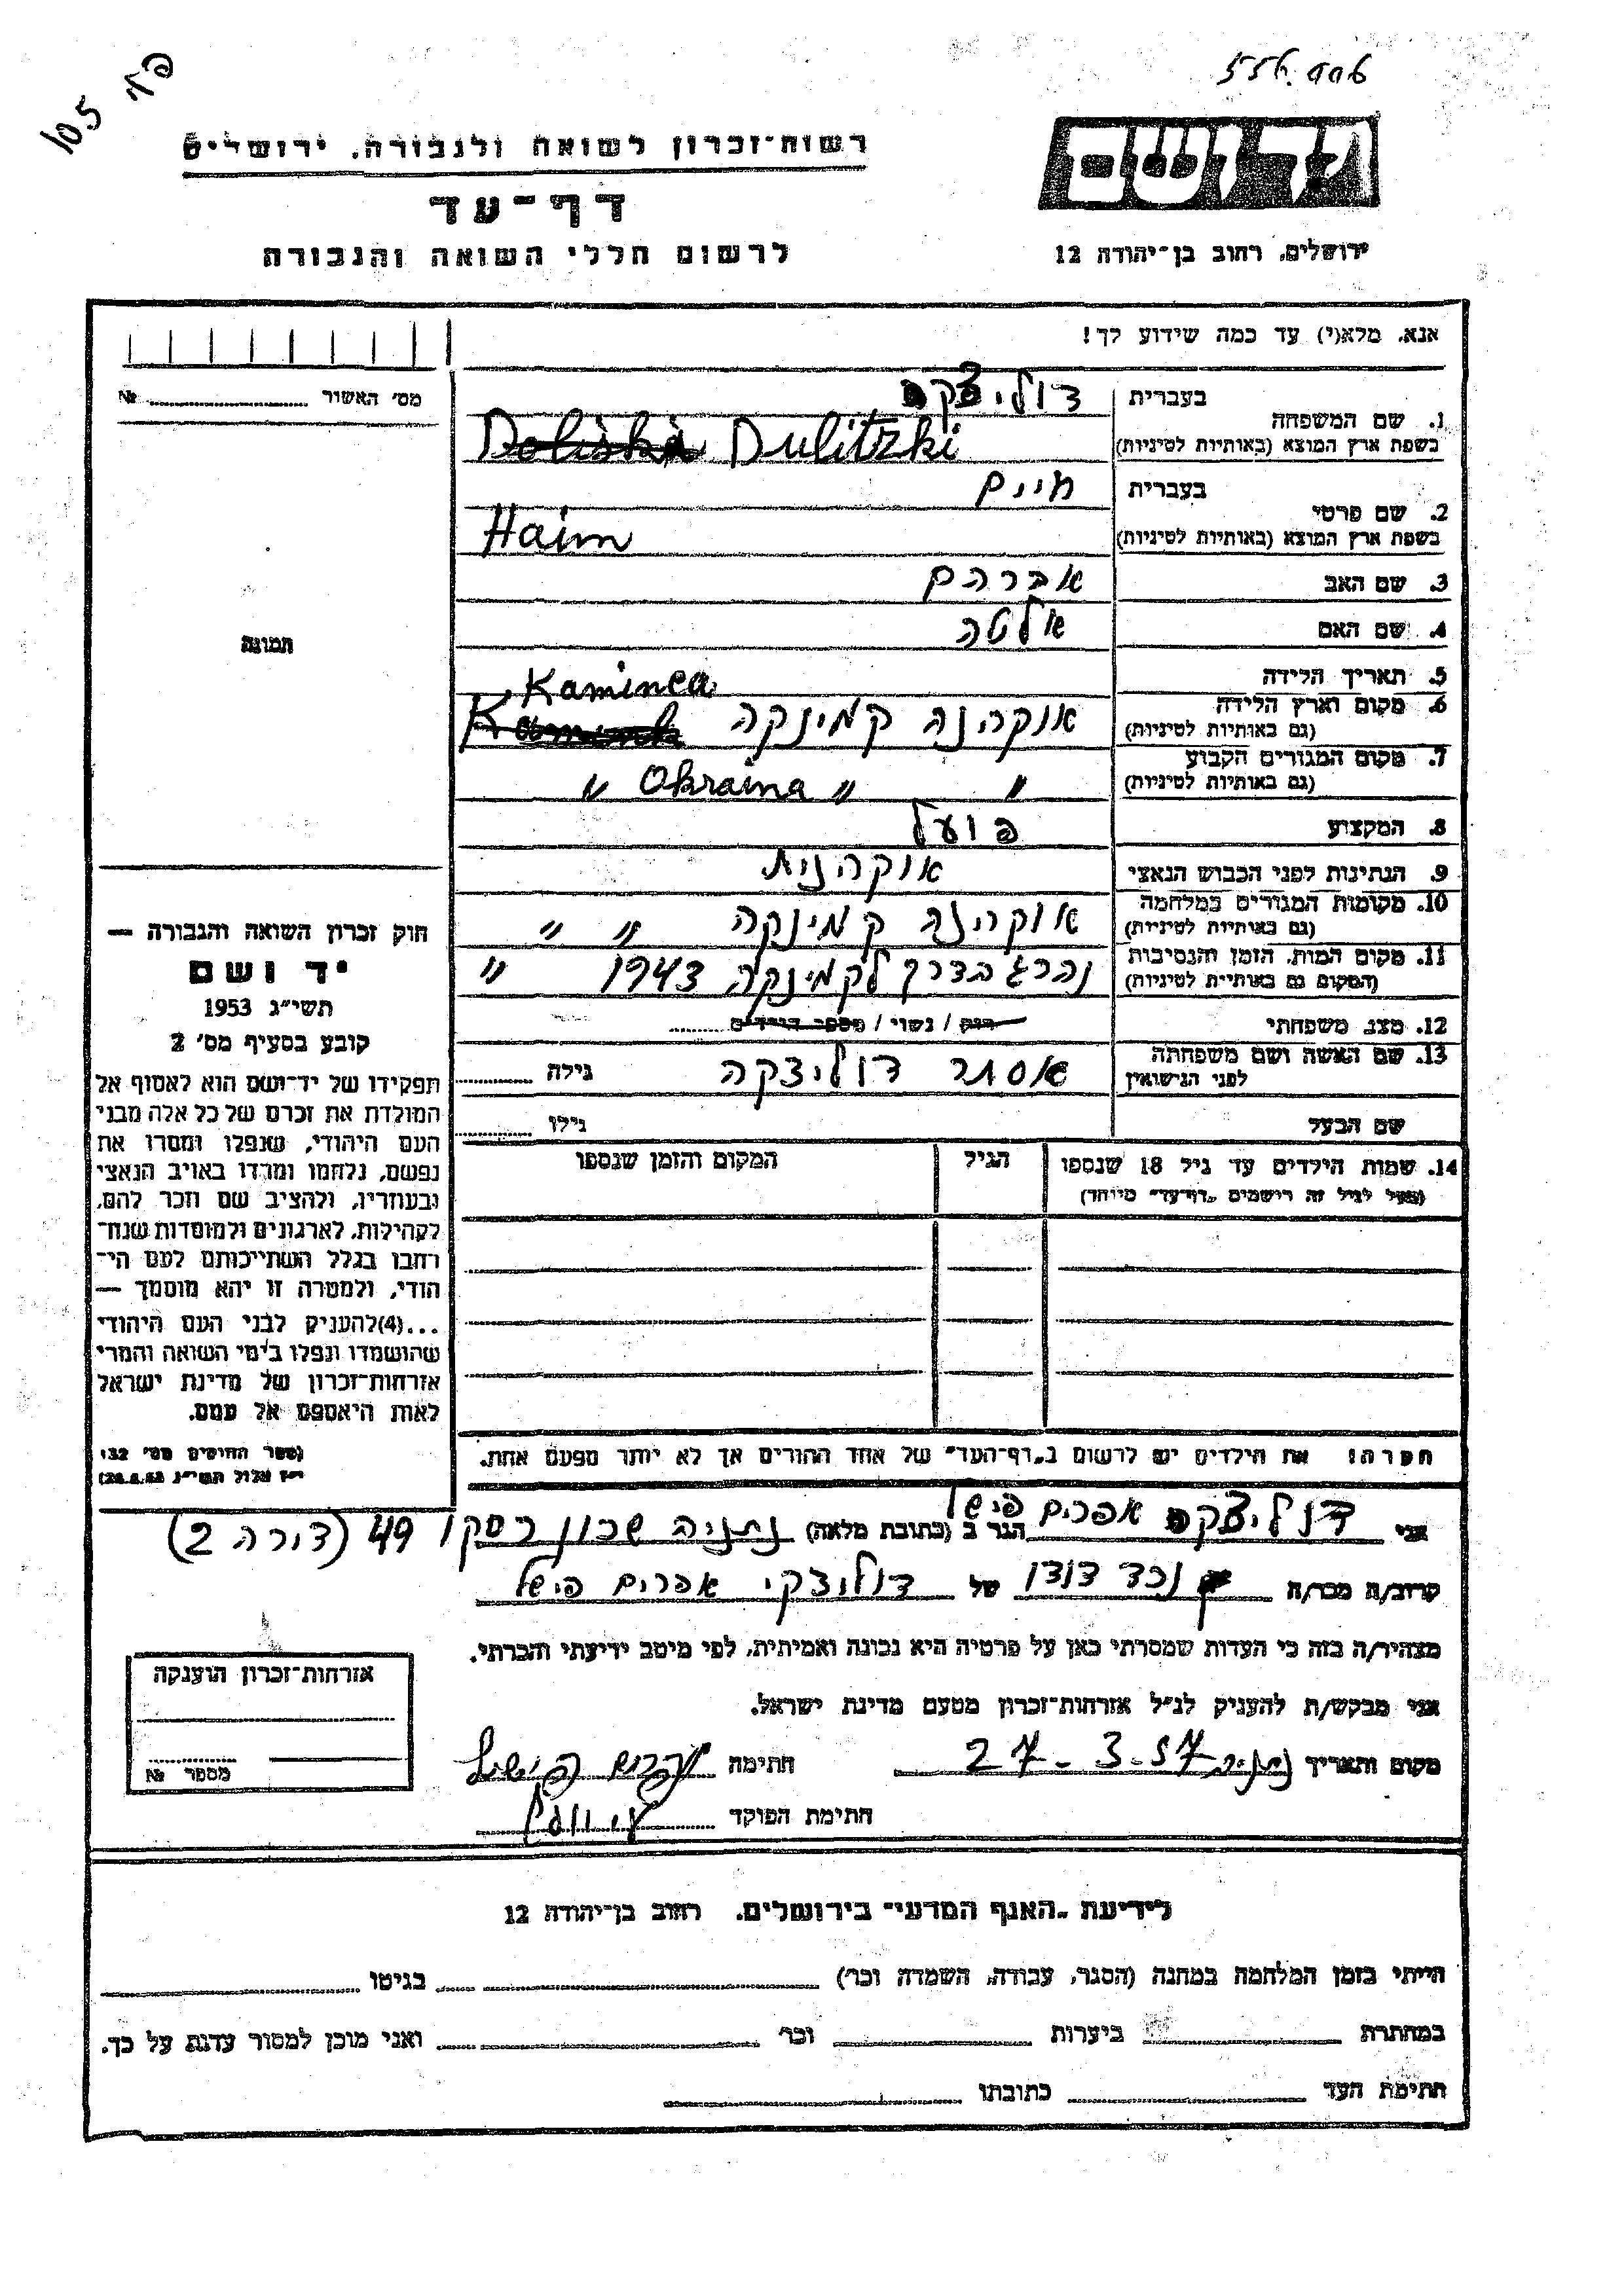 105
רשות-זכרון לשואה ולגבורה, ירושלים
דף-עד
לרשום חללי השואה והגבורה
ירושלים, רחוב בן-יהודה 12
אנא, מלא(י) עד כמה שידוע לך!
מס׳ האשור № 
1. שם המשפחה
בעברית דוליצקי
בשפת ארץ המוצא (באותיות לטיניות) Dulitzki
2. שם פרטי
בעברית חיים
בשפת ארץ המוצא (באותיות לטיניות) Haim
3. שם האב אברהם
4. שם האם אלטה
5. תאריך הלידה
Kaminca
6. מקום וארץ הלידה אוקרינה קמינקה
(גם באותיות לטיניות)
7. מקום המגורים הקבוע
(גם באותיות לטיניות) " " Okraina "
8. המקצוע פועל
9. הנתינות לפני הכבוש הנאצי אוקרנית
10. מקומות המגורים במלחמה אוקרינה קמינקה " "
(גם באותיות לטיניות)
11. מקום המות, הזמן והנסיבות נהרג בדרך לקמינקה 1943 "
(המקום גם באותיות לטיניות)
12. מצב משפחתי רווק / נשוי / מספר הילדים
13. שם האשה ושם משפחתה אסתר דוליצקה גילה
לפני הנישואין
שם הבעל גילו
14. שמות הילדים עד גיל 18 שנספו הגיל המקום והזמן שנספו
(מעל לגיל זה רישמים „דף-עד" מיוחד)
תמונה
חוק זכרון השואה והגבורה —
יד ושם
תשי״ג 1953
קובע בסעיף מס׳ 2
תפקידו של יד-ושם הוא לאסוף אל
המולדת את זכרם של כל אלה מבני
העם היהודי, שנפלו ומסרו את
נפשם, נלחמו ומרדו באויב הנאצי
ובעוזריו, ולהציב שם וזכר להם,
לקהילות, לארגונים ולמוסדות שנח-
רבו בגלל השתייכותם לעם הי-
הודי, ולמטרה זו יהא מוסמך —
...(4) להעניק לבני העם היהודי
שהושמדו ונפלו בימי השואה והמרי
אזרחות-זכרון של מדינת ישראל
לאות היאספם אל עמם.
(ספר החוקים מס׳ 132
י״ז אלול תשי״ג 28.8.53)
הערה: את הילדים יש לרשום ב„דף-העד" של אחד ההורים אך לא יותר מפעם אחת.
אני דוליצקי אפרים פישל הגר ב (כתובת מלאה) נתניה שכון רסקו 49 (דירה 2)
קרוב/ה מכר/ה נכד דודו של דוליצקי אפרים פישל
מצהיר/ה בזה כי העדות שמסרתי כאן על פרטיה היא נכונה ואמיתית, לפי מיטב ידיעתי והכרתי.
אני מבקש/ת להעניק לנ״ל אזרחות-זכרון מטעם מדינת ישראל.
מקום ותאריך נתניה 27-3-57 חתימה
חתימת הפוקד
אזרחות-זכרון הוענקה
מספר №
לידיעת „האגף המדעי" בירושלים, רחוב בן-יהודה 12
הייתי בזמן המלחמה במחנה (הסגר, עבודה, השמדה וכו׳) בגיטו
במחתרת ביערות וכו׳ ואני מוכן למסור עדות על כך.
חתימת העד כתובתו